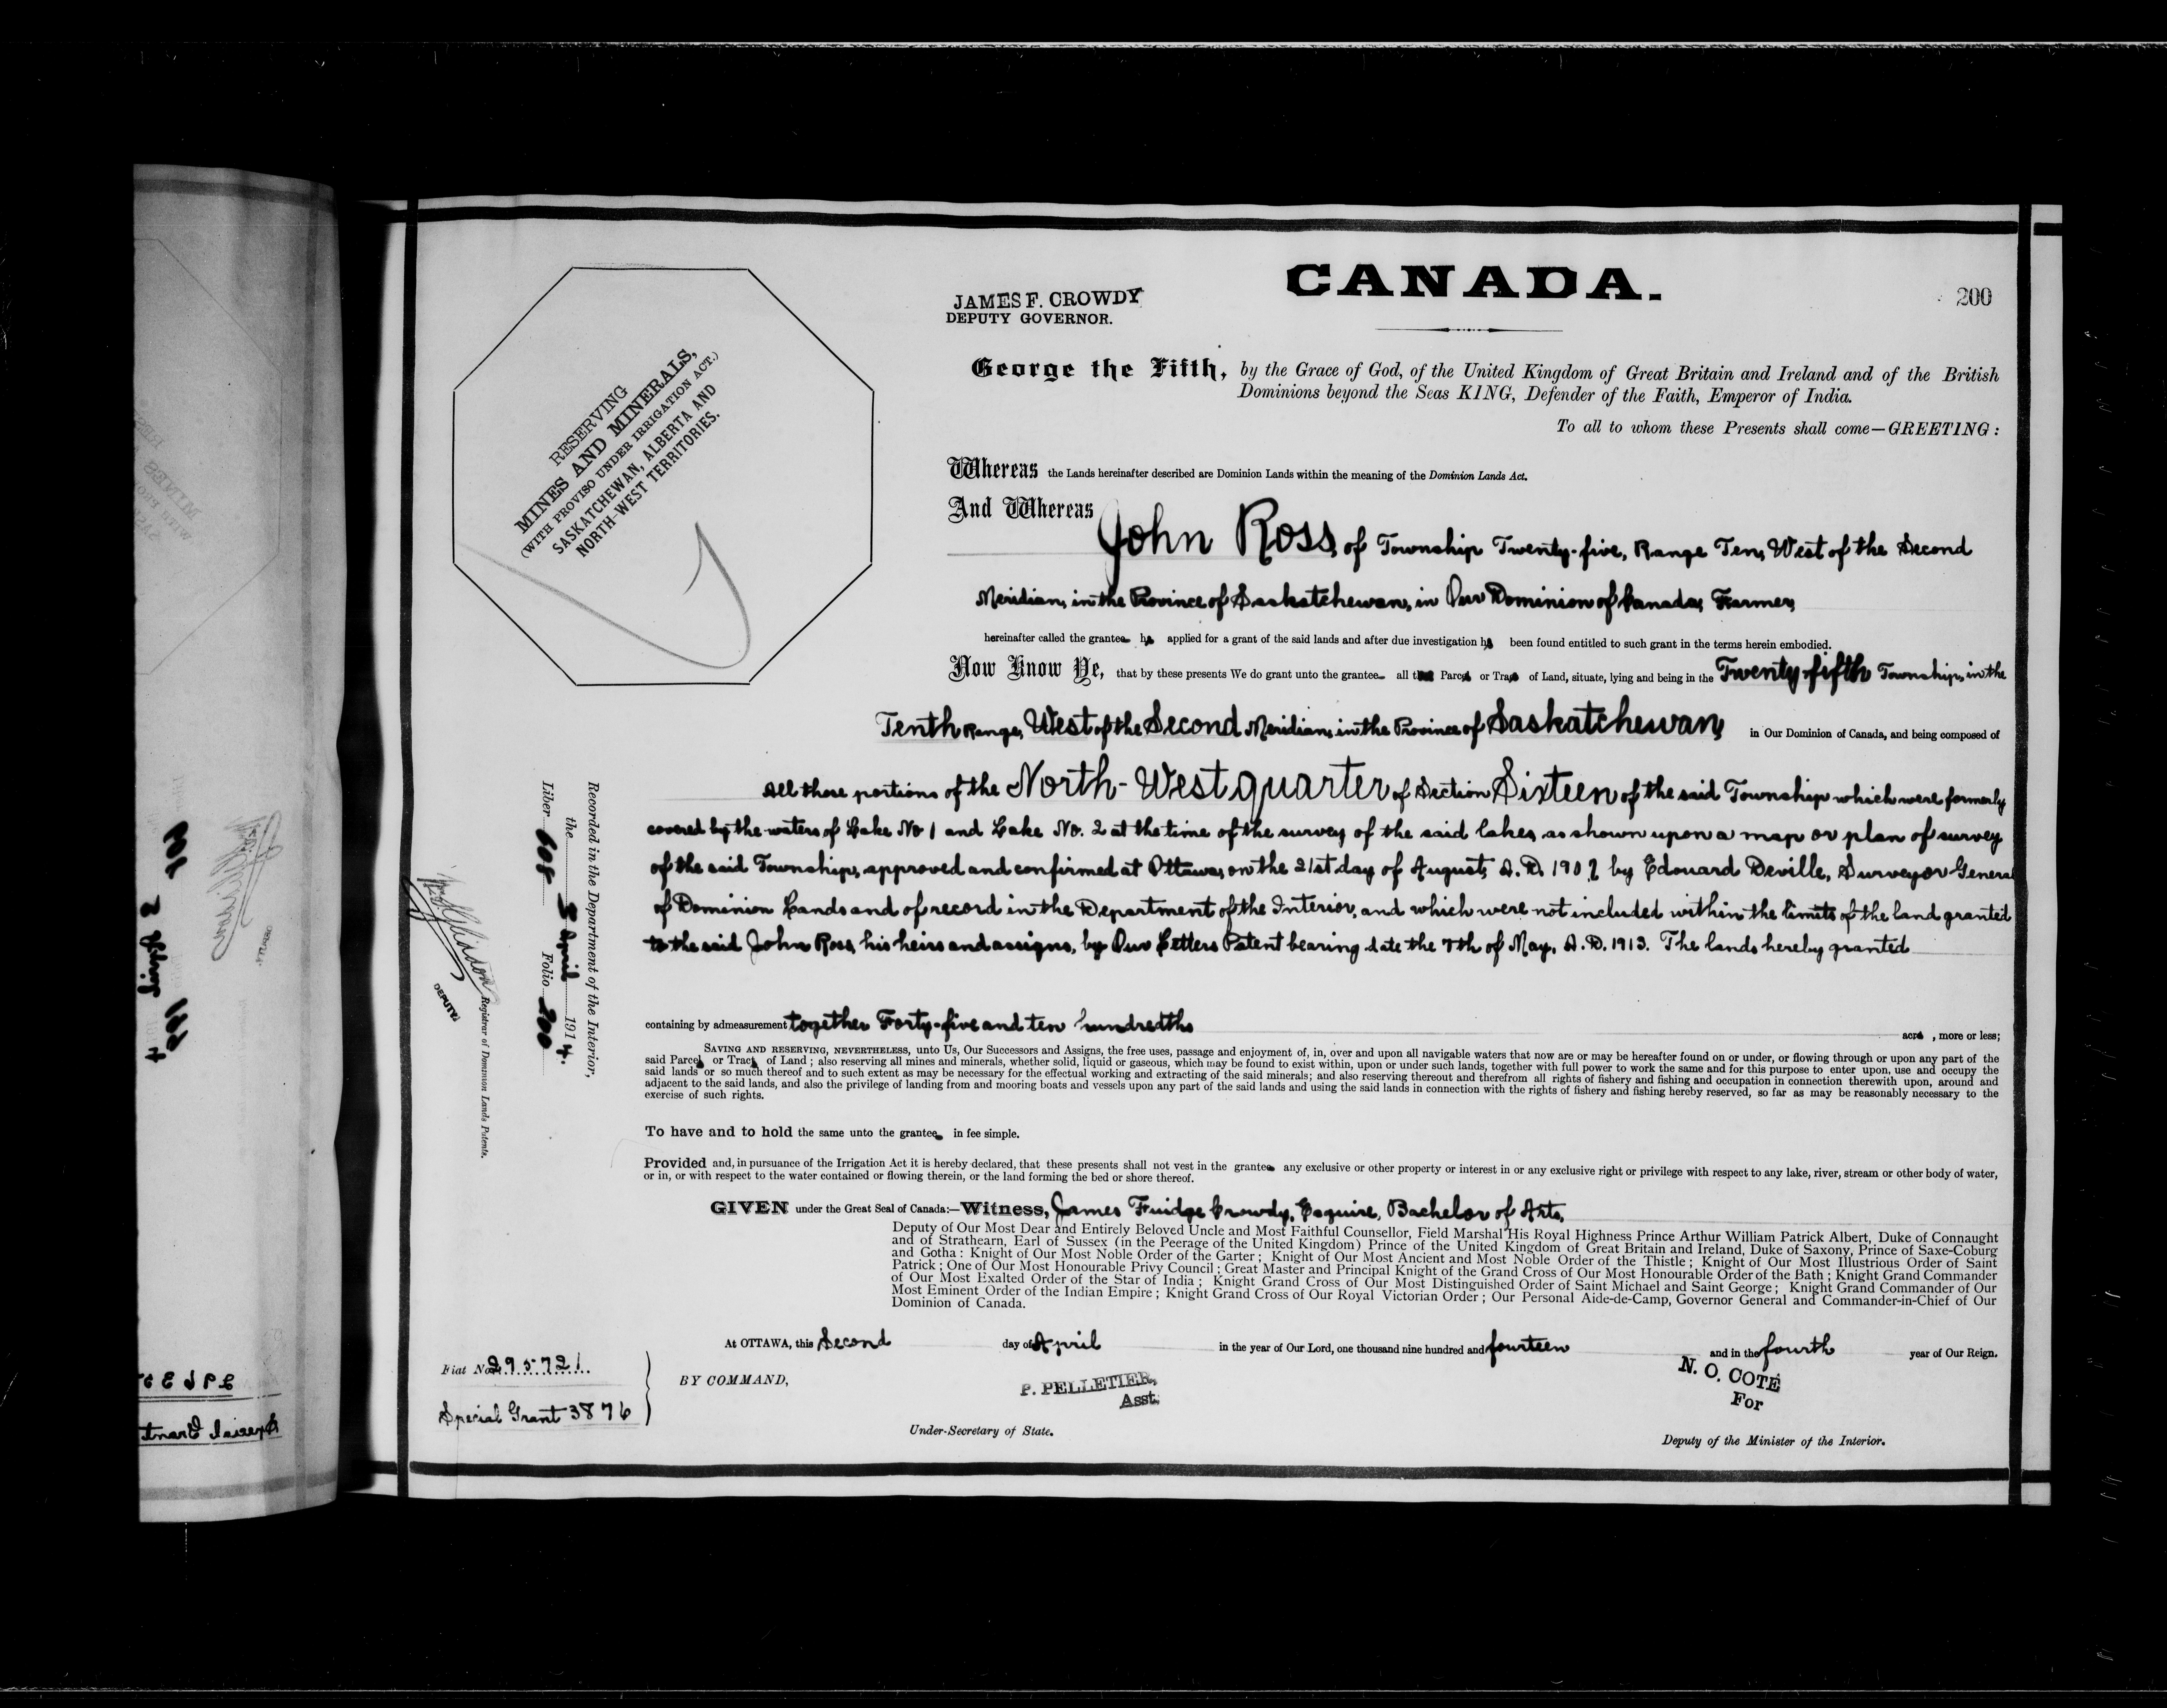 CANADA.
200
JAMES F. CROWDY
DEPUTY GOVERNOR.
RESERVING
MINES AND MINERALS,
(WITH PROVISO UNDER IRRIGATION ACT.)
SASKATCHEWAN, ALBERTA AND
NORTH-WEST TERRITORIES.
George the Fifth, by the Grace of God, of the United Kingdom of Great Britain and Ireland and of the British
Dominions beyond the Seas KING, Defender of the Faith, Emperor of India.
To all to whom these Presents shall come—GREETING:
Whereas the Lands hereinafter described are Dominion Lands within the meaning of the Dominion Lands Act.
And Whereas John Ross, of Township Twenty-five, Range Ten, West of the Second
Meridian, in the Province of Saskatchewan, in Our Dominion of Canada, Farmer,
hereinafter called the grantee has applied for a grant of the said lands and after due investigation has been found entitled to such grant in the terms herein embodied.
Now Know Ye, that by these presents We do grant unto the grantee all Parcel or Tract of Land, situate, lying and being in the Twenty-fifth Township, in the
Tenth Range, West of the Second Meridian, in the Province of Saskatchewan, in Our Dominion of Canada, and being composed of
All those portions of the North-West quarter of Section Sixteen of the said Township which were formerly
covered by the waters of Lake No 1 and Lake No. 2 at the time of the survey of the said lakes, as shown upon a map or plan of survey
of the said Township, approved and confirmed at Ottawa, on the 21st day of August, A.D. 190 by Edouard Deville, Surveyor General
of Dominion Lands and of record in the Department of the Interior, and which were not included within the limits of the land granted
to the said John Ross, his heirs and assigns, by Our Letters Patent bearing date the 7th of May, A.D. 1913. The lands hereby granted
containing by admeasurement together Forty-five and ten hundredths acres, more or less;
SAVING AND RESERVING, NEVERTHELESS, unto Us, Our Successors and Assigns, the free uses, passage and enjoyment of, in, over and upon all navigable waters that now are or may be hereafter found on or under, or flowing through or upon any part of the
said Parcel or Tract of Land; also reserving all mines and minerals, whether solid, liquid or gaseous, which may be found to exist within, upon or under such lands, together with full power to work the same and for this purpose to enter upon, use and occupy the
said lands or so much thereof and to such extent as may be necessary for the effectual working and extracting of the said minerals; and also reserving thereout and therefrom all rights of fishery and fishing and occupation in connection therewith upon, around and
adjacent to the said lands, and also the privilege of landing from and mooring boats and vessels upon any part of the said lands and using the said lands in connection with the rights of fishery and fishing hereby reserved, so far as may be reasonably necessary to the
exercise of such rights.
To have and to hold the same unto the grantee in fee simple.
Provided and, in pursuance of the Irrigation Act it is hereby declared, that these presents shall not vest in the grantee any exclusive or other property or interest in or any exclusive right or privilege with respect to any lake, river, stream or other body of water,
or in, or with respect to the water contained or flowing therein, or the land forming the bed or shore thereof.
GIVEN under the Great Seal of Canada:—Witness, James Fuidge Crowdy, Esquire, Bachelor of Arts,
Deputy of Our Most Dear and Entirely Beloved Uncle and Most Faithful Counsellor, Field Marshal His Royal Highness Prince Arthur William Patrick Albert, Duke of Connaught
and of Strathearn, Earl of Sussex (in the Peerage of the United Kingdom) Prince of the United Kingdom of Great Britain and Ireland, Duke of Saxony, Prince of Saxe-Coburg
and Gotha: Knight of Our Most Noble Order of the Garter; Knight of Our Most Ancient and Most Noble Order of the Thistle; Knight of Our Most Illustrious Order of Saint
Patrick; One of Our Most Honourable Privy Council; Great Master and Principal Knight of the Grand Cross of Our Most Honourable Order of the Bath; Knight Grand Commander
of Our Most Exalted Order of the Star of India; Knight Grand Cross of Our Most Distinguished Order of Saint Michael and Saint George; Knight Grand Commander of Our
Most Eminent Order of the Indian Empire; Knight Grand Cross of Our Royal Victorian Order; Our Personal Aide-de-Camp, Governor General and Commander-in-Chief of Our
Dominion of Canada.
At OTTAWA, this Second day of April in the year of Our Lord, one thousand nine hundred and fourteen and in the fourth year of Our Reign.
BY COMMAND,
P. PELLETIER,
Asst.
Under-Secretary of State.
N. O. COTÉ
For
Deputy of the Minister of the Interior.
Fiat No. 295721
Special Grant 3876
Recorded in the Department of the Interior,
the 3 April 1914.
Liber 608 Folio 200
DEPUTY
Registrar of Dominion Lands Patents.